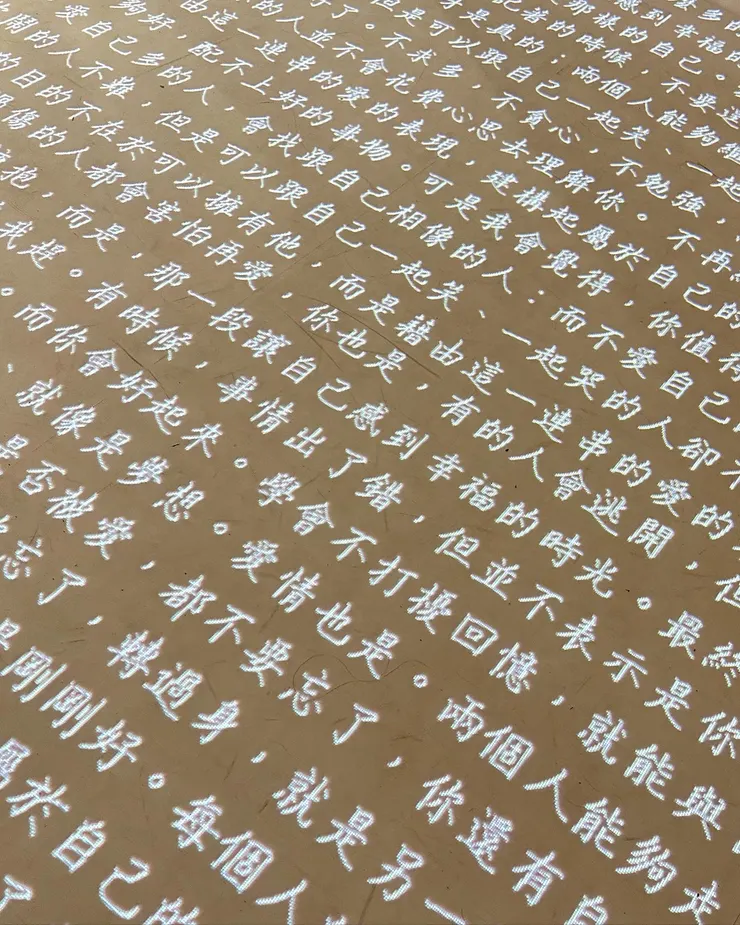 感到幸福的
那樣的自己。
的時候，不要
才是真的；兩個人能夠
但是可以跟自己一起笑、一起
了。不求多，不貪心，不勉強，
的人並不會花費心思去理解你。不再
由這一連串的愛的表現，建構起屬於自己的
夠好，配不上好的事物。可是我會覺得，你值得
愛自己多的人，會找跟自己相像的人：而不愛自己的
開的人不難，但是可以跟自己一起笑、一起哭的人卻不
的目的不在於可以擁有他，而是藉由這一連串的愛的
傷的人都會害怕再愛，你也是，有的人會逃開，但
抱，而是，那一段讓自己感到幸福的時光。最終
我趕。有時候，事情出了錯，但並不表示是你
。而你會好起來。學會不打擾回憶，就能與
，就像是夢想。愛情也是。兩個人能夠走
是否被愛，都不要忘了，你還有自
忘了，轉過身，就是另一
是剛剛好。每個人
屬於自己的
了